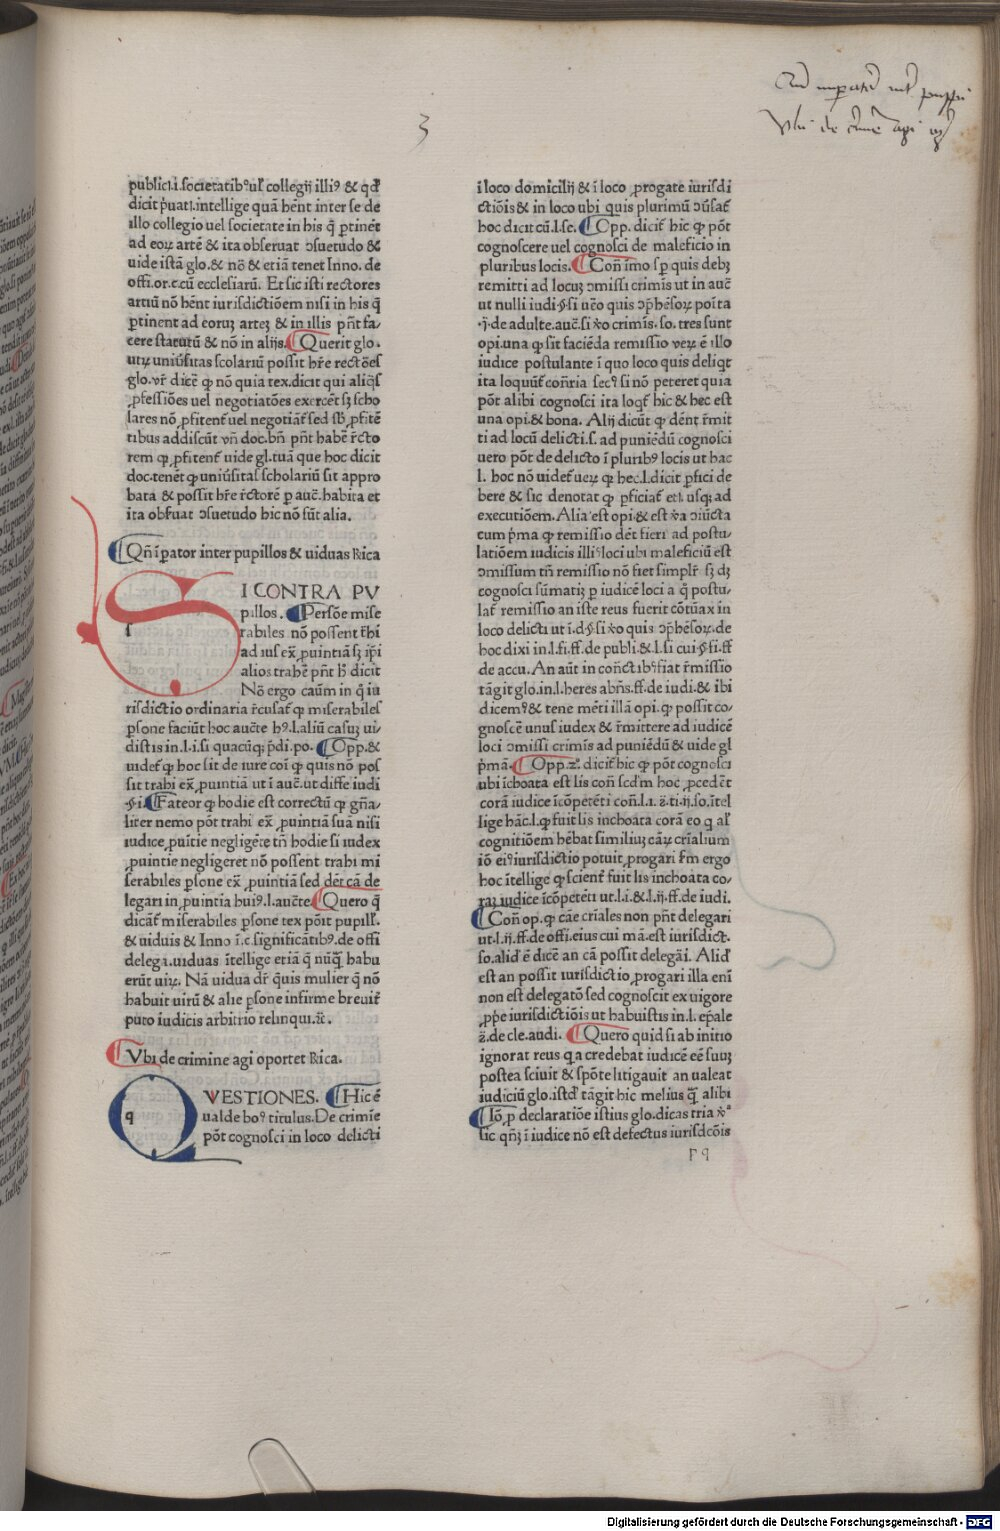 3
publici.i.societatibꝰ ul̃ collegij illiꝰ & qđ
dicit p̃uati.intellige quã hẽnt inter se de
illo collegio uel societate in his q̃ ꝑtinẽt
ad eoꝝ artẽ & ita obseruat ↄsuetudo &
uide istã glo. & nõ & etiã tenet Inno. de
offi.or.c.cũ ecclesiarũ. Et sic isti rectores
artiũ nõ hẽnt iurisdictiõem nisi in his q̃
ꝑtinent ad eoruꝫ arteꝫ & in illis pñt fa/
cere statutũ & nõ in alijs. Querit glo.
utꝝ uniũsitas scolariũ possit hr̃e rectoẽs
glo. vr̃ dicẽ ꝙ nõ quia tex. dicit qui aliq̃s
ꝓfessiões uel negotiatões exercẽt sꝫ scho
lares nõ ꝓfitent̃ uel negotiãt̃ sed sƀ ꝓfitẽ
tibus addiscũt vñ doc. bñ pñt habẽ r̃cto
rem ꝙ ꝓfitent̃ uide gl. tuã que hoc dicit
doc. tenẽt ꝙ uniũsitas scholariũ sit appro
bata & possit hr̃e r̃ctorẽ ꝑ auc̃. habita et
ita obſuat ↄsuetudo hic nõ sũt alia.
Qñ ĩꝑator inter pupillos & uiduas Rica
SI CONTRA PV
pillos. Persõe mise
rabiles nõ possent t̃hi
ad ius ex̃ ꝓuintiã sꝫ ip̃i
alios trahẽ pñt ħ dicit
Nõ ergo caũm in q̃ iu
risdictio ordinaria r̃cusat̃ ꝙ miserabiles
ꝑsone faciũt hoc auc̃te hꝰ.l. aliũ casuꝫ ui/
distis in.l.i. si quacũqꝫ p̃di.po. Opp. &
uidet̃ ꝙ hoc sit de iure coĩ ꝙ quis nõ pos
sit trahi ex̃ ꝓuintiã ut ĩ auc̃. ut differe iudi
§.i. Fateor ꝙ hodie est correctũ ꝙ gñа/
liter nemo põt trahi ex̃ ꝓuintiã suã nisi
iudice ꝓuĩtie negligẽte tñ hodie si iudex
ꝓuintie negligeret nõ possent trahi mi
serabiles ꝑsone ex̃ ꝓuintiã sed dẽt cã de
legari in ꝓuintia huiꝰ.l. auc̃te. Quero q̃
dicãt̃ miserabiles ꝑsone tex põit pupill̃.
& uiduis & Inno ĩ.c. significãtibꝰ. de offi
delega. uiduas ĩtellige etiã q̃ nũq̃ habu
erũt uiꝝ. Nã uidua dr̃ q̃uis mulier q̃ nõ
habuit uirũ & alie ꝑsone infirme breuit̃
puto iudicis arbitrio relinqui. &c̃.
Vbi de crimine agi oportet Rica.
QVESTIONES. Hic ẽ
ualde boꝰ titulus. De crimĩe
põt cognosci in loco delicti
i loco domicilij & ĩ loco ꝓrogate iurisdi
ctiõis & in loco ubi quis plurimũ ↄũsat̃
hoc dicit cũ.l.se. Opp. dicit̃ hic ꝙ põt
cognoscere uel cognosci de maleficio in
pluribus locis. Coñ imo sꝑ quis debꝫ
remitti ad locuꝫ ↄmissi crimĩs ut in auc̃
ut nulli iudi. §. si uẽo quis ↄp̃hẽsoꝝ poĩta
.ij. de adulte. auc̃. si ꝟo crimĩs. so. tres sunt
opi. una ꝙ sit faciẽda remissio veꝝ ẽ illo
iudice postulante ĩ quo loco quis deliq̃t
ita loquũt̃ coñria secꝰ si nõ peteret quia
põt alibi cognosci ita loqt̃ hic & hec est
una opi. & bona. Alij dicũt ꝙ dẽnt r̃mit
ti ad locũ delicti. s. ad puniẽdũ cognosci
uero põt de delicto ĩ pluribꝰ locis ut hac
l. hoc nõ uidet̃ ueꝝ ꝙ hec.l. dicit ꝑfici de
bere & sic denotat ꝙ ꝑficiat̃ et.l. usqꝫ ad
executiõem. Alia est opi & est ꝟa ↄiũcta
cum p̃ma ꝙ remissio dẽt fieri ad postu/
latiõem iudicis illiꝰ loci ubi maleficiũ est
ↄmissum tñ remissio nõ fiet simplr̃ sꝫ dꝫ
cognosci sũmatiꝫ ꝑ iudicẽ loci a q̃ postu/
lat̃ remissio an iste reus fuerit cõtũax in
loco delicti ut ĩ. d. §. si ꝟo quis ↄp̃hẽsoꝝ. de
hoc dixi in.l.fi.ff.de publi. & l. si cui. §. fi. ff
de accu. An aũt in coñctibꝰ fiat r̃missio
tãgit glo. in.l. heres abñs. ff. de iudi. & ibi
dicemꝰ & tene mẽti illã opi. ꝙ possit co/
gnoscẽ unus iudex & r̃mittere ad iudicẽ
loci ↄmissi crimĩs ad puniẽdũ & uide gl
p̃mã. Opp.2ͦ. dicit̃ hic ꝙ põt cognosci
ubi ĩchoata est lis coñ scd̃m hoc ꝓcedẽt
corã iudice ĩcõpetẽti coñ.l.1. &.ti.ij. so. ĩtel
lige hãc.l. ꝙ fuit lis inchoata corã eo q̃ al̃
cognitiõem hẽbat similiũ cãꝝ cr̃ialium
iõ eiꝰ iurisdictio potuit ꝓrogari fm̃ ergo
hoc ĩtellige ꝙ scient̃ fuit lis inchoata co/
raꝫ iudice ĩcõpetẽti ut.l.i. & l.ij. ff. de iudi.
Coñ op. ꝙ cãe cr̃iales non pñt delegari
ut.l.ij.ff. de offi. eius cui mã. est iurisdict̃.
so. aliđ ẽ dicẽ an cã possit delegãi. Aliđ
est an possit iurisdictio ꝓrogari illa enĩ
non est delegatõ sed cognoscit ex uigore
ꝓp̃e iurisdictiõis ut habuistis in.l. ep̃ale
&. de cle. audi. Quero quid si ab initio
ignorat reus q̃ a credebat iudicẽ eẽ suuꝫ
postea sciuit & spõte litigauit an ualeat
iudiciũ glo. istđ tãgit hic melius q̃ alibi
Iõ ꝑ declaratiõe istius glo. dicas tria ꝟͣ
sic qñꝫ ĩ iudice nõ est defectus iurisdcõis
Digitalisierung gefördert durch die Deutsche Forschungsgemeinschaft - DFG